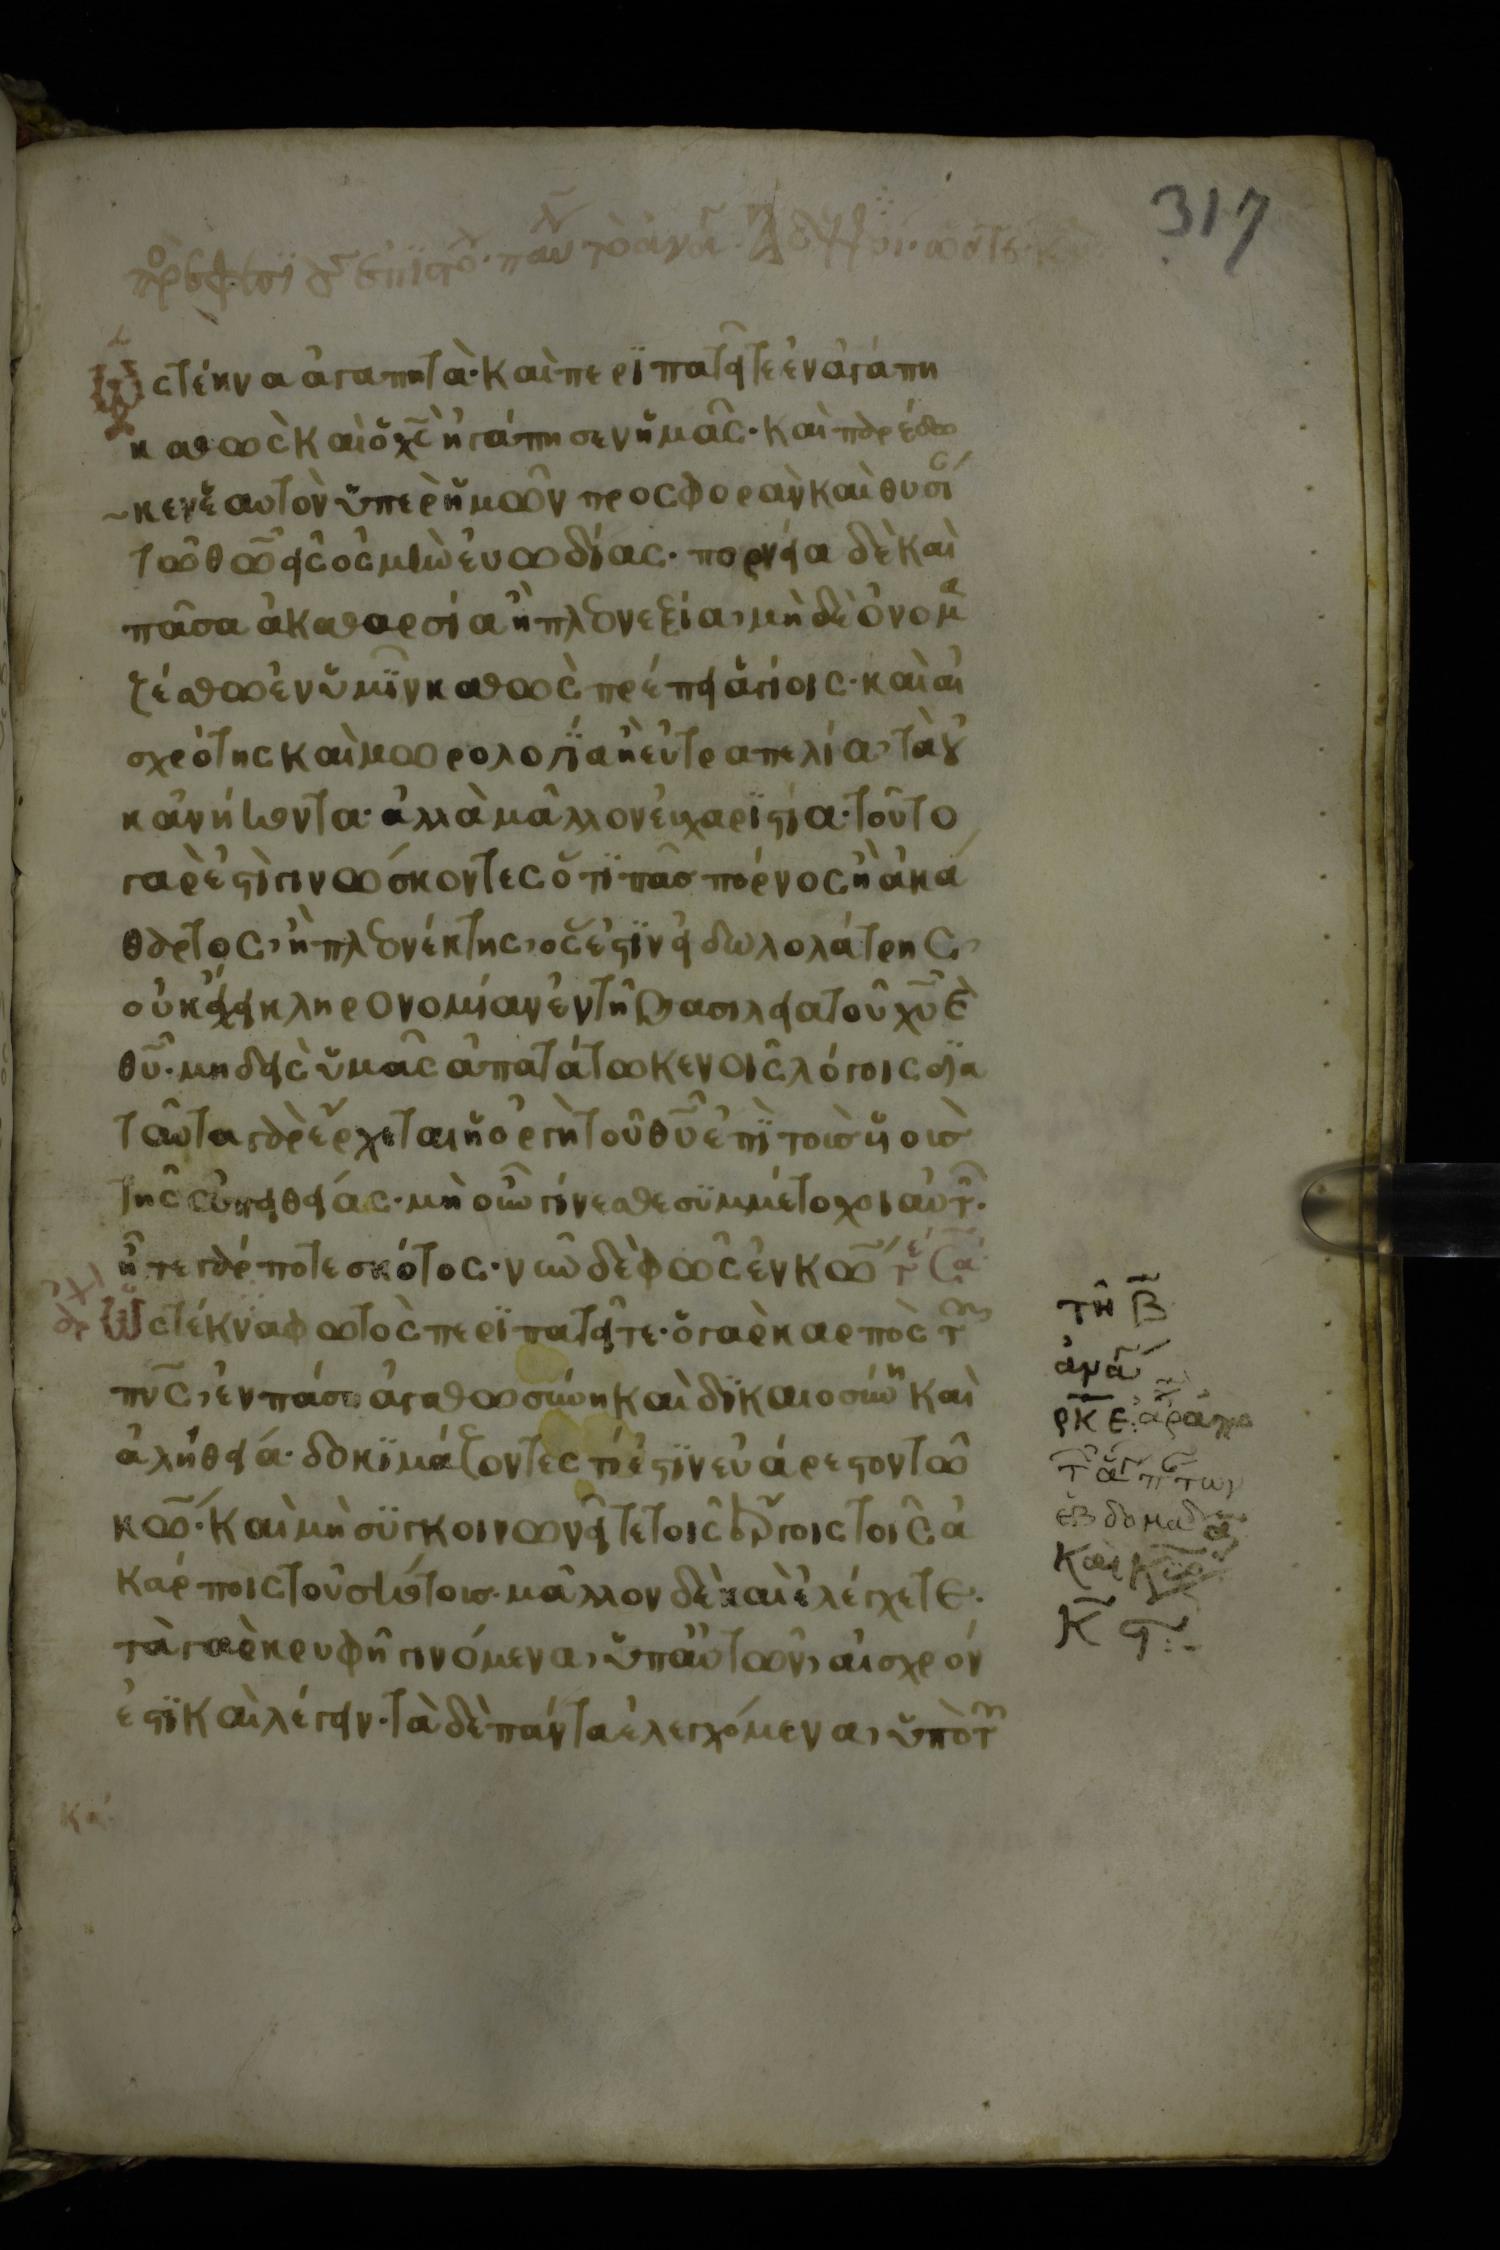 317
ὡς τέκνα ἀγαπητὰ· καὶ περϊπατεῖτε ἐν ἀγάπη
καθὼς καὶ ὁ χς ἠγάπησεν ἡμᾶς· καὶ παρέδω
κεν ἑαυτὸν ὑπὲρ ἡμῶν προσφορὰν καὶ θυσί
τῶ θῶ εἰς ὀσμὴν εὐωδίας· πορνεία δὲ καὶ
πᾶσα ἀκαθαρσία ἢ πλεονεξία, μὴ δὲ ὀνομα
ζέσθω ἐν ὑμῖν καθὼς πρέπει ἁγίοις· καὶ αἰ
σχρότης καὶ μωρολογία ἢ εὐτραπελία, τὰ οὐ
κ ἀνήκοντα· ἀλλὰ μᾶλλον εὐχαρϊστία· τοῦτο
γὰρ ἐστὲ γινώσκοντες ὅτϊ πᾶσ πόρνος ἢ ἀκά
θαρτος, ἢ πλεονέκτης, ὅς ἐστϊν εἰδωλολάτρης,
οὐκ ἔχει κληρονομίαν ἐν τῆ βασιλεία τοῦ χυ καὶ
θυ· μηδεὶς ὑμᾶς ἀπατάτω κενοῖς λόγοις δϊα
ταῦτα γὰρ ἔρχεται ἡ ὀργὴ τοῦ θυ ἐπϊ τοὺσ υἱοὺσ
τῆς ἀπειθείας· μὴ οὖν γίνεσθε συμμέτοχοι αὐτ·
ἦτε γάρ ποτε σκότος· νῦν δὲ φῶς ἐν κω
ὡς τέκνα φωτὸς περϊπατεῖτε· ὁ γὰρ καρπὸς τ
πνς, ἐν πάση ἀγαθωσύνη καὶ δϊκαιοσύνη καὶ
ἀληθεία· δοκϊμάζοντες τί ἐστϊν εὐάρεστον τῶ
κω· καὶ μὴ συγκοινωνεῖτε τοῖς ἔργοις τοῖς ἀ
κάρποις τοῦ σκότουσ· μᾶλλον δὲ καὶ ἐλέγχετε·
τὰ γὰρ κρυφῆ γινόμενα, ὑπ αὐτῶν, αἰσχρόν
ἐστϊ καὶ λέγειν· τὰ δὲ πάντα ἐλεγχόμενα, ὑπὸ τ
τῆ β